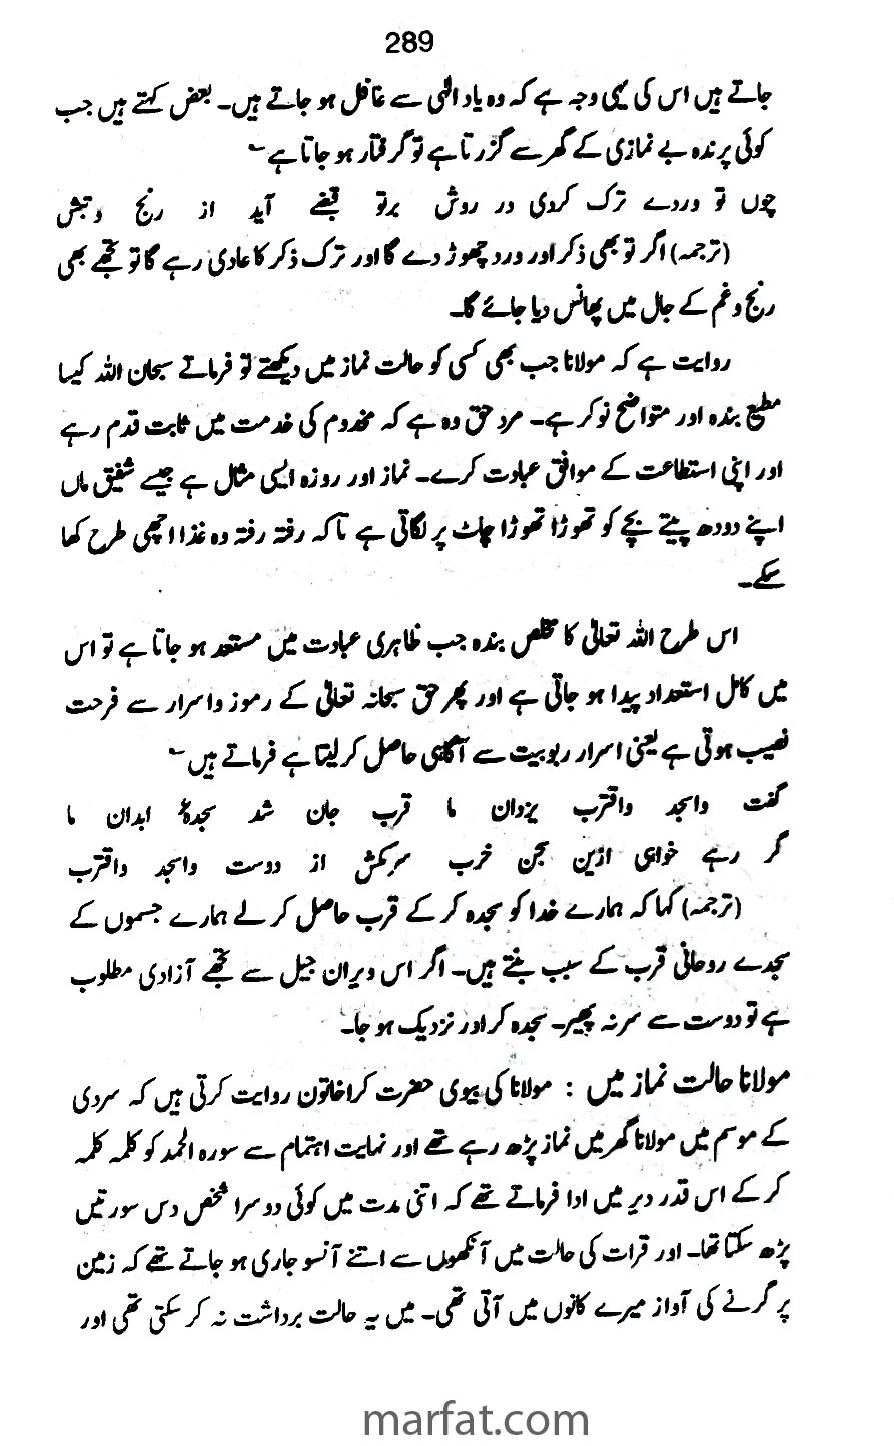 289
جاتے ہیں اس کی یہی وجہ ہے کہ وہ یاد الٰہی سے غافل ہو جاتے ہیں۔ بعض کہتے ہیں جب
کوئی پرندہ بے نمازی کے گھر سے گزرتا ہے تو گرفتار ہو جاتا ہے ؎
چوں تو وردے ترک کردی در روش برتو قبضے آید از رنج و تبش
(ترجمہ) اگر تو بھی ذکر اور ورد چھوڑ دے گا اور ترک ذکر کا عادی رہے گا تو تجھے بھی
رنج و غم کے جال میں پھانس دیا جائے گا۔
روایت ہے کہ مولانا جب بھی کسی کو حالت نماز میں دیکھتے تو فرماتے سبحان اللہ کیا
مطیع بندہ اور متواضع نوکر ہے۔ مرد حق وہ ہے کہ مخدوم کی خدمت میں ثابت قدم رہے
اور اپنی استطاعت کے موافق عبادت کرے۔ نماز اور روزہ ایسی مثال ہے جیسے شفیق ماں
اپنے دودھ پیتے بچے کو تھوڑا تھوڑا چاٹ پر لگاتی ہے تاکہ رفتہ رفتہ وہ غذا اچھی طرح کھا
سکے۔
اس طرح اللہ تعالیٰ کا مخلص بندہ جب ظاہری عبادت میں مستعد ہو جاتا ہے تو اس
میں کامل استعداد پیدا ہو جاتی ہے اور پھر حق سبحانہ تعالیٰ کے رموز و اسرار سے فرحت
نصیب ہوتی ہے یعنی اسرار ربوبیت سے آگاہی حاصل کر لیتا ہے فرماتے ہیں ؎
گفت واسجد واقترب یزدان ما قرب جان شد سجدۂ ابدان ما
گر رہے خواہی ازین سجن خرب سرمکش از دوست واسجد واقترب
(ترجمہ) کہا کہ ہمارے خدا کو سجدہ کر کے قرب حاصل کر لے ہمارے جسموں کے
سجدے روحانی قرب کے سبب بنتے ہیں۔ اگر اس ویران جیل سے تجھے آزادی مطلوب
ہے تو دوست سے سر نہ پھیر۔ سجدہ کر اور نزدیک ہو جا۔
مولانا حالت نماز میں : مولانا کی بیوی حضرت کراخاتون روایت کرتی ہیں کہ سردی
کے موسم میں مولانا گھر میں نماز پڑھ رہے تھے اور نہایت اہتمام سے سورہ الحمد کو کلمہ کلمہ
کر کے اس قدر دیر میں ادا فرماتے تھے کہ اتنی مدت میں کوئی دوسرا شخص دس سورتیں
پڑھ سکتا تھا۔ اور قرات کی حالت میں آنکھوں سے اتنے آنسو جاری ہو جاتے تھے کہ زمین
پر گرنے کی آواز میرے کانوں میں آتی تھی۔ میں یہ حالت برداشت نہ کر سکتی تھی اور
marfat.com